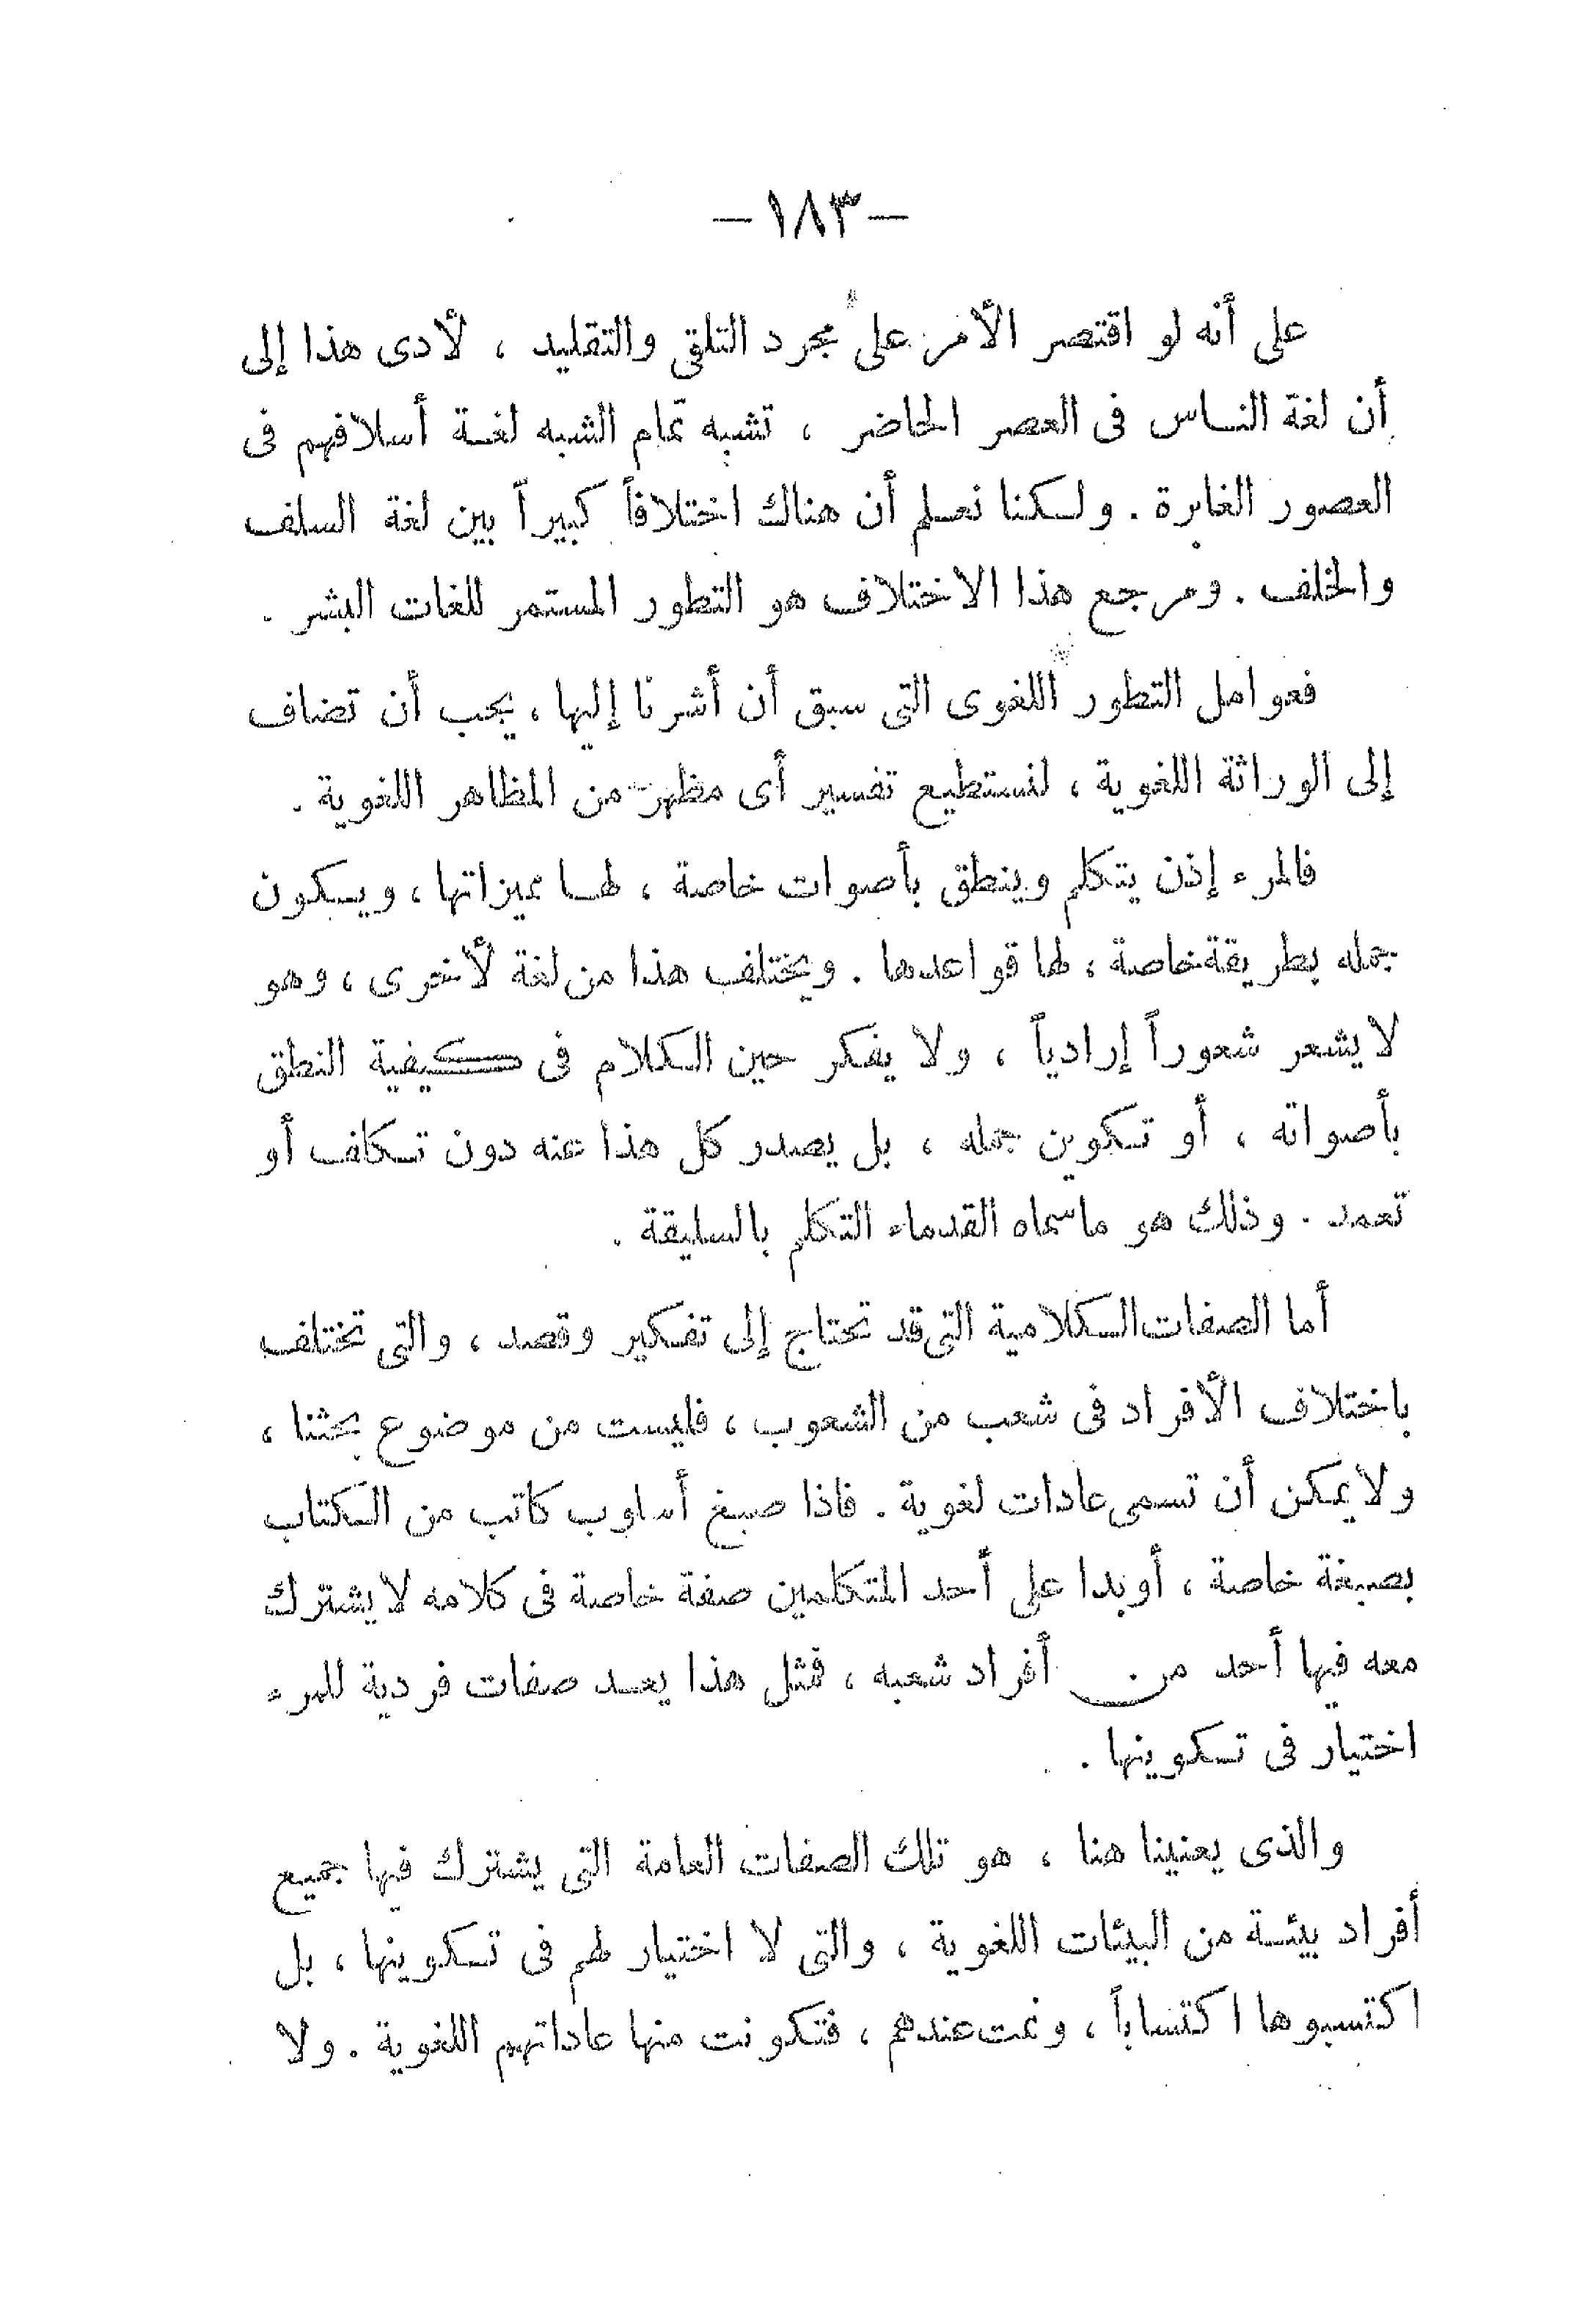 — ١٨٣ —
على أنه لو اقتصر الأمر على مجرد التلقى والتقليد ، لأدى هذا إلى
أن لغة الناس فى العصر الحاضر ، تشبه تمام الشبه لغة أسلافهم فى
العصور الغابرة . ولكننا نعلم أن هناك اختلافاً كبيراً بين لغة السلف
والخلف . ومرجع هذا الاختلاف هو التطور المستمر للغات البشر .
فعوامل التطور اللغوى التى سبق أن أشرنا إليها ، يجب أن تضاف
إلى الوراثة اللغوية ، لنستطيع تفسير أى مظهر من المظاهر اللغوية .
فالمرء إذن يتكلم وينطق بأصوات خاصة ، لها مميزاتها ، ويكون
جمله بطريقة خاصة ، لها قواعدها . ويختلف هذا من لغة لأخرى ، وهو
لا يشعر شعوراً إرادياً ، ولا يفكر حين الكلام فى كيفية النطق
بأصواته ، أو تكوين جمله ، بل يصدر كل هذا عنه دون تكلف أو
تعمد . وذلك هو ماسماه القدماء التكلم بالسليقة .
أما الصفات الكلامية التى قد تحتاج إلى تفكير وقصد ، والتى تختلف
باختلاف الأفراد فى شعب من الشعوب ، فليست من موضوع بحثنا ،
ولا يمكن أن تسمى عادات لغوية . فاذا صبغ أسلوب كاتب من الكتاب
بصبغة خاصة ، أو بدا على أحد المتكلمين صفة خاصة فى كلامه لا يشترك
معه فيها أحد من أفراد شعبه ، فمثل هذا يعد صفات فردية للمرء
اختيار فى تكوينها .
والذى يعنينا هنا ، هو تلك الصفات العامة التى يشترك فيها جميع
أفراد بيئة من البيئات اللغوية ، والتى لا اختيار لهم فى تكوينها ، بل
اكتسبوها اكتساباً ، ونمت عندهم ، فتكونت منها عاداتهم اللغوية . ولا